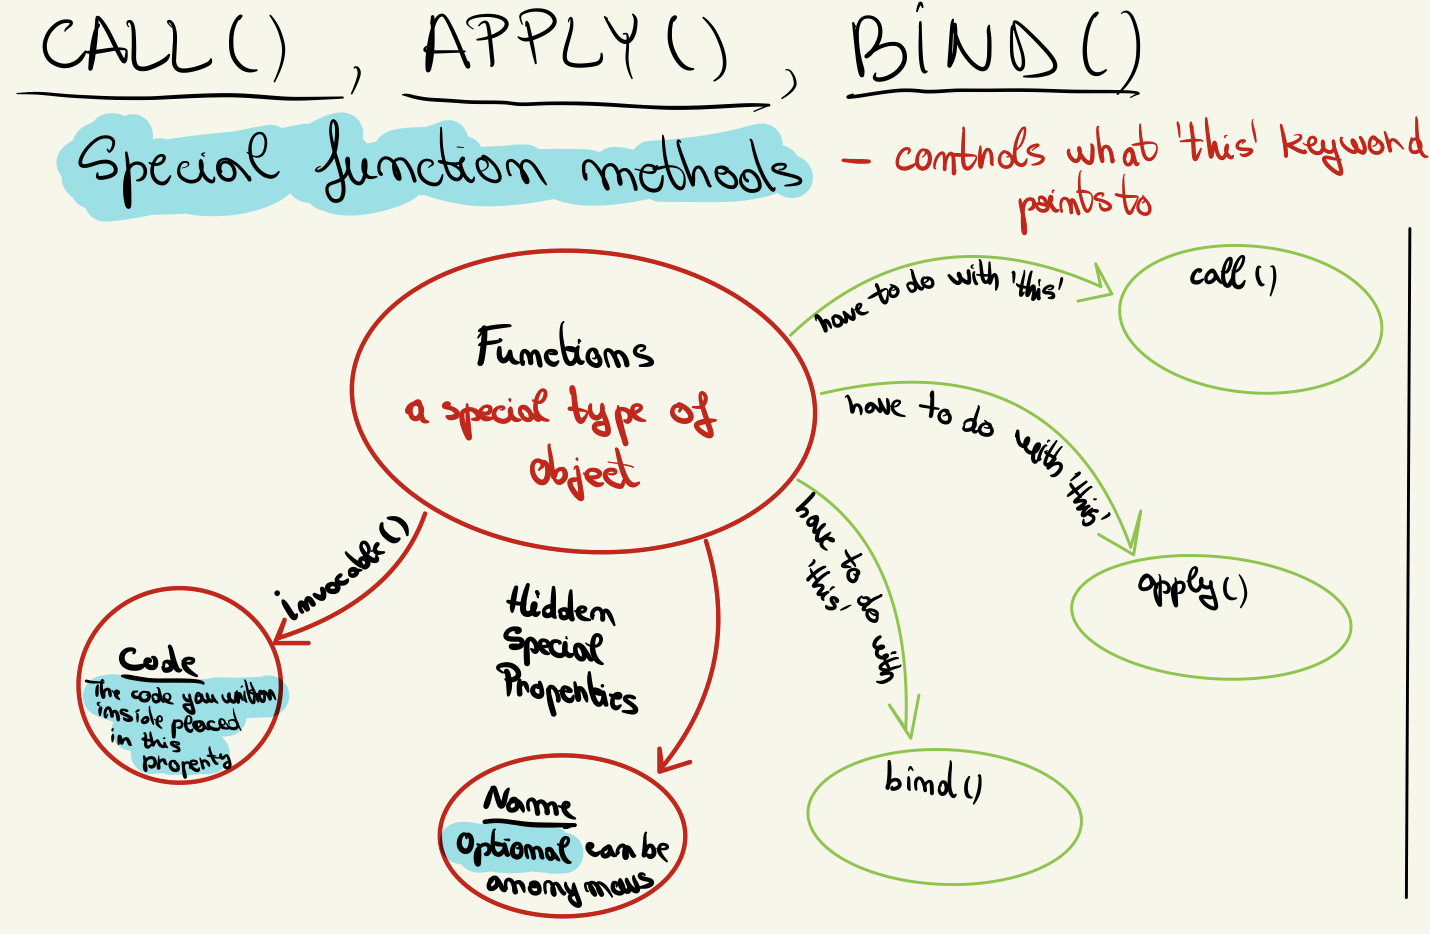 CALL() , APPLY() , BIND()
Special function methods - controls what 'this' keyword
points to
Functions
a special type of
object
have to do with 'this'
call()
have to do with 'this'
apply()
have to do with
'this'
bind()
invocable()
Code
The code you written
inside placed
in this
property
Hidden
Special
Properties
Name
Optional can be
anonymous